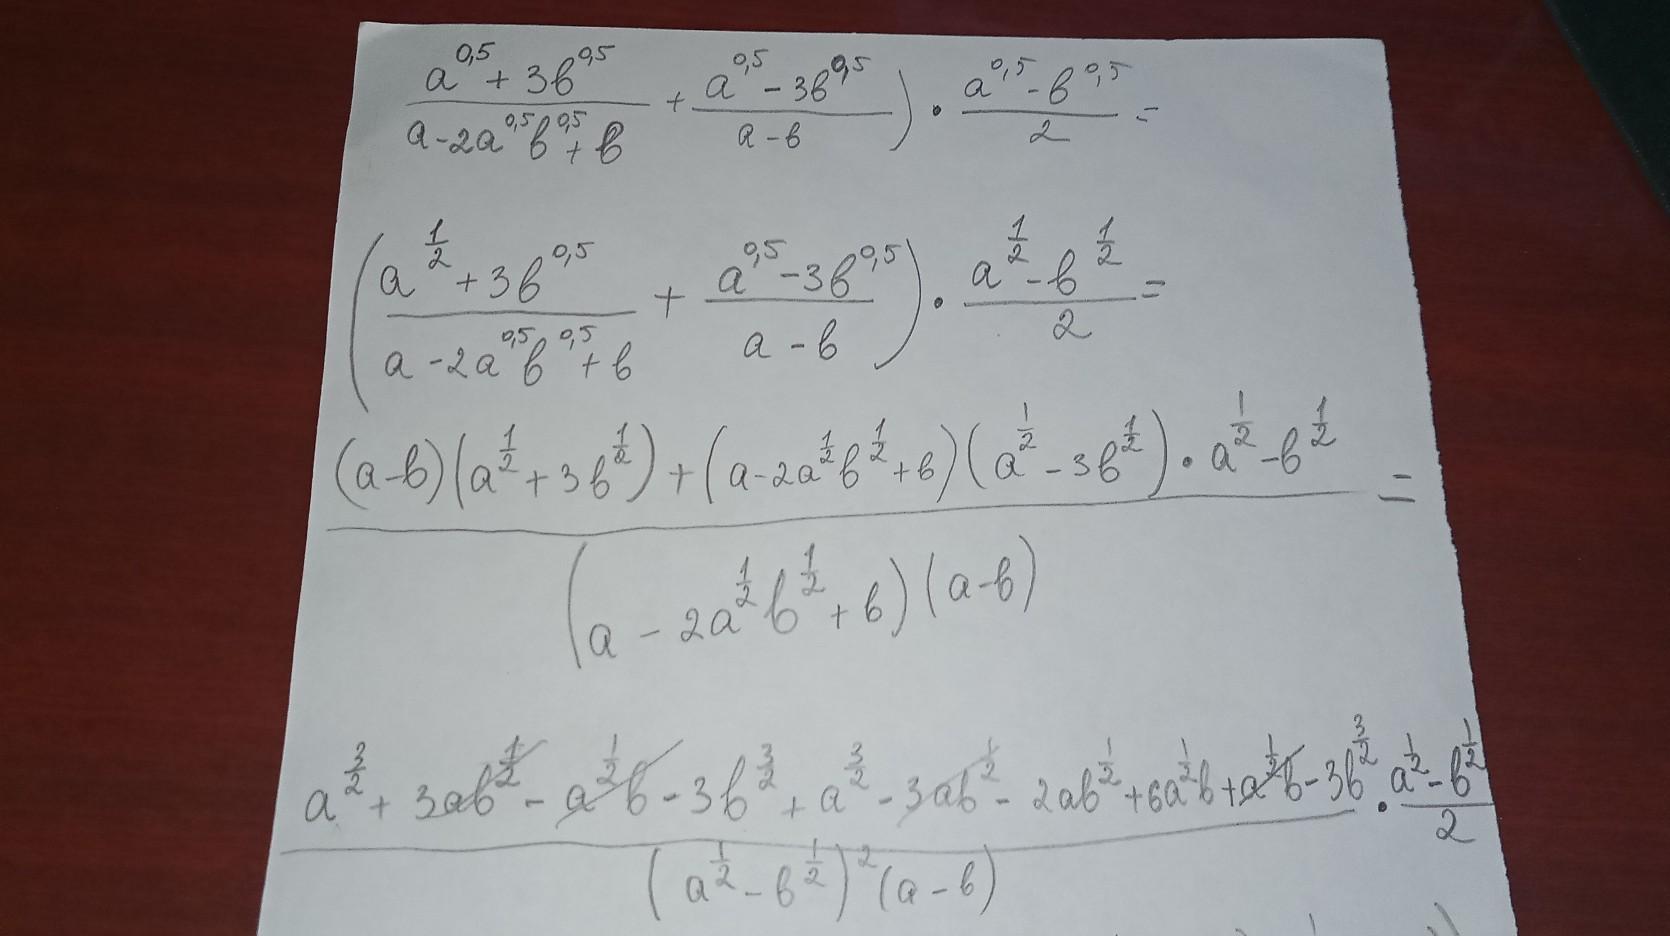 (a^0,5 + 3b^0,5)/(a - 2a^0,5 b^0,5 + b) + (a^0,5 - 3b^0,5)/(a - b)) · (a^0,5 - b^0,5)/2 =
((a^1/2 + 3b^0,5)/(a - 2a^0,5 b^0,5 + b) + (a^0,5 - 3b^0,5)/(a - b)) · (a^1/2 - b^1/2)/2 =
(a-b)(a^1/2 + 3b^1/2) + (a - 2a^1/2 b^1/2 + b)(a^1/2 - 3b^1/2) · a^1/2 - b^1/2 =
(a - 2a^1/2 b^1/2 + b)(a-b)
a^3/2 + 3ab^1/2 - a^1/2 b - 3b^3/2 + a^3/2 - 3ab^1/2 - 2ab^1/2 + 6a^1/2 b + a^1/2 b - 3b^3/2 · (a^1/2 - b^1/2)/2
(a^1/2 - b^1/2)^2 (a - b)